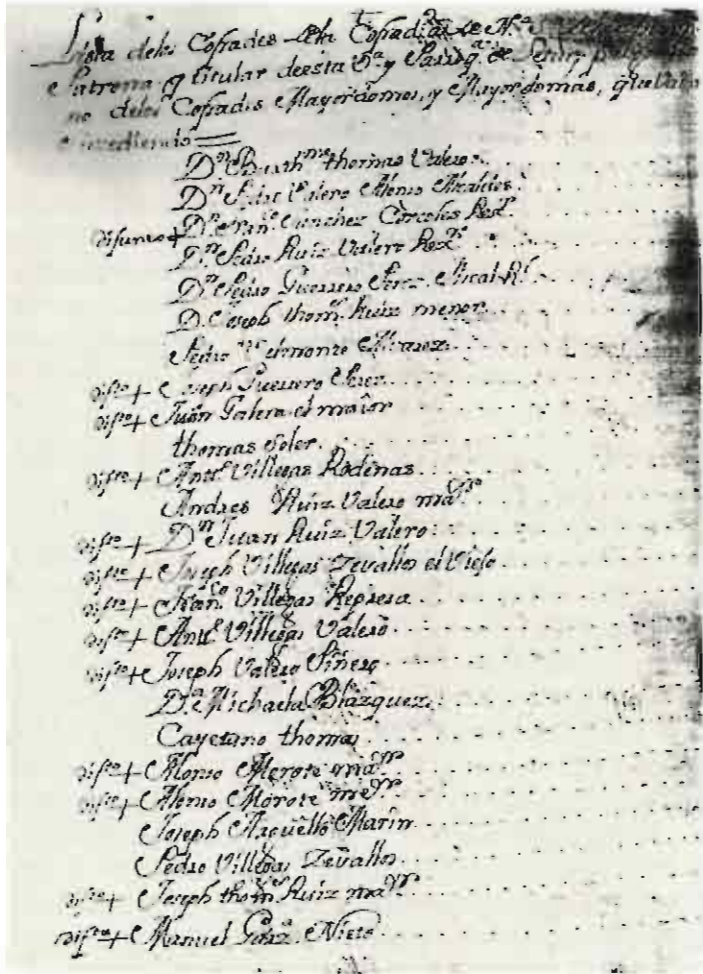 Lista delos Cofrades dela Cofradia de N.ª S.ª
Patrona y titular de esta V.ª y Parroq.ª de
no delos Cofrades Mayordomos, y Mayordomas, que
D.n Barth.me thomas Valero
D.n Pedro Valero Alonso Alcaldes
difunto + D.n Fran.co Sanchez Corcoles Rex.r
D.n Pedro Ruiz Valero Rex.r
D.n Pedro Guerrero Perez
D. Joseph thom.s Ruiz menor
Pedro Alvarez
dif.to + Joseph Guerrero Perez
dif.to + Juan Galera el maior
thomas Soler
dif.to + Ant.o Villegas Rodenas
Andres Ruiz Valero ma.or
dif.to + D.n Juan Ruiz Valero
dif.to + Joseph Villegas Zevallos el Viejo
dif.to + Fran.co Villegas Represa
dif.to + Ant.o Villegas Valero
dif.to + Joseph Valero Piñero
D.ª Michaela Blazquez
Cayetano thomas
dif.to + Alonso Morote ma.or
dif.to + Alonso Morote me.or
Joseph Marin
Pedro Villegas Zevallos
dif.to + Joseph thom.s Ruiz ma.or
dif.to + Manuel Garz.ª Nieto